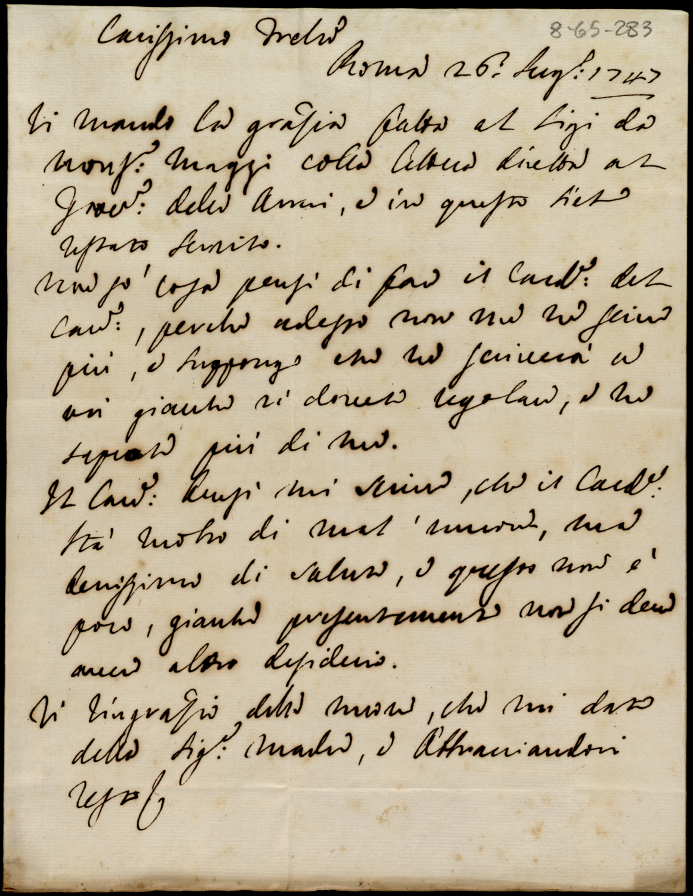 8-65-283
Carissimo Frello
Roma 26: Lugl: 1747
Vi mando la grazia fatta al Gigi da
Mons:r Maggi colla lettera diretta al
Gover: delle Armi, e in questo siete
restato servito.
Non so' cosa pensi di fare il Card: del
Cav:, perche adesso non me ne scrive
più, e suppongo che ne scriverà a
voi gianche vi dovete regolare, e ne
saprete più di me.
Il Cav: mi scrive, che il Card:
stà molto di mal' umore, ma
benissimo di salute, e questo non è
poco, gianche presentemente non si deve
avere altro desiderio.
Vi ringrazio delle nuove, che mi date
della Sig: Madre, e abbracciandovi
resto